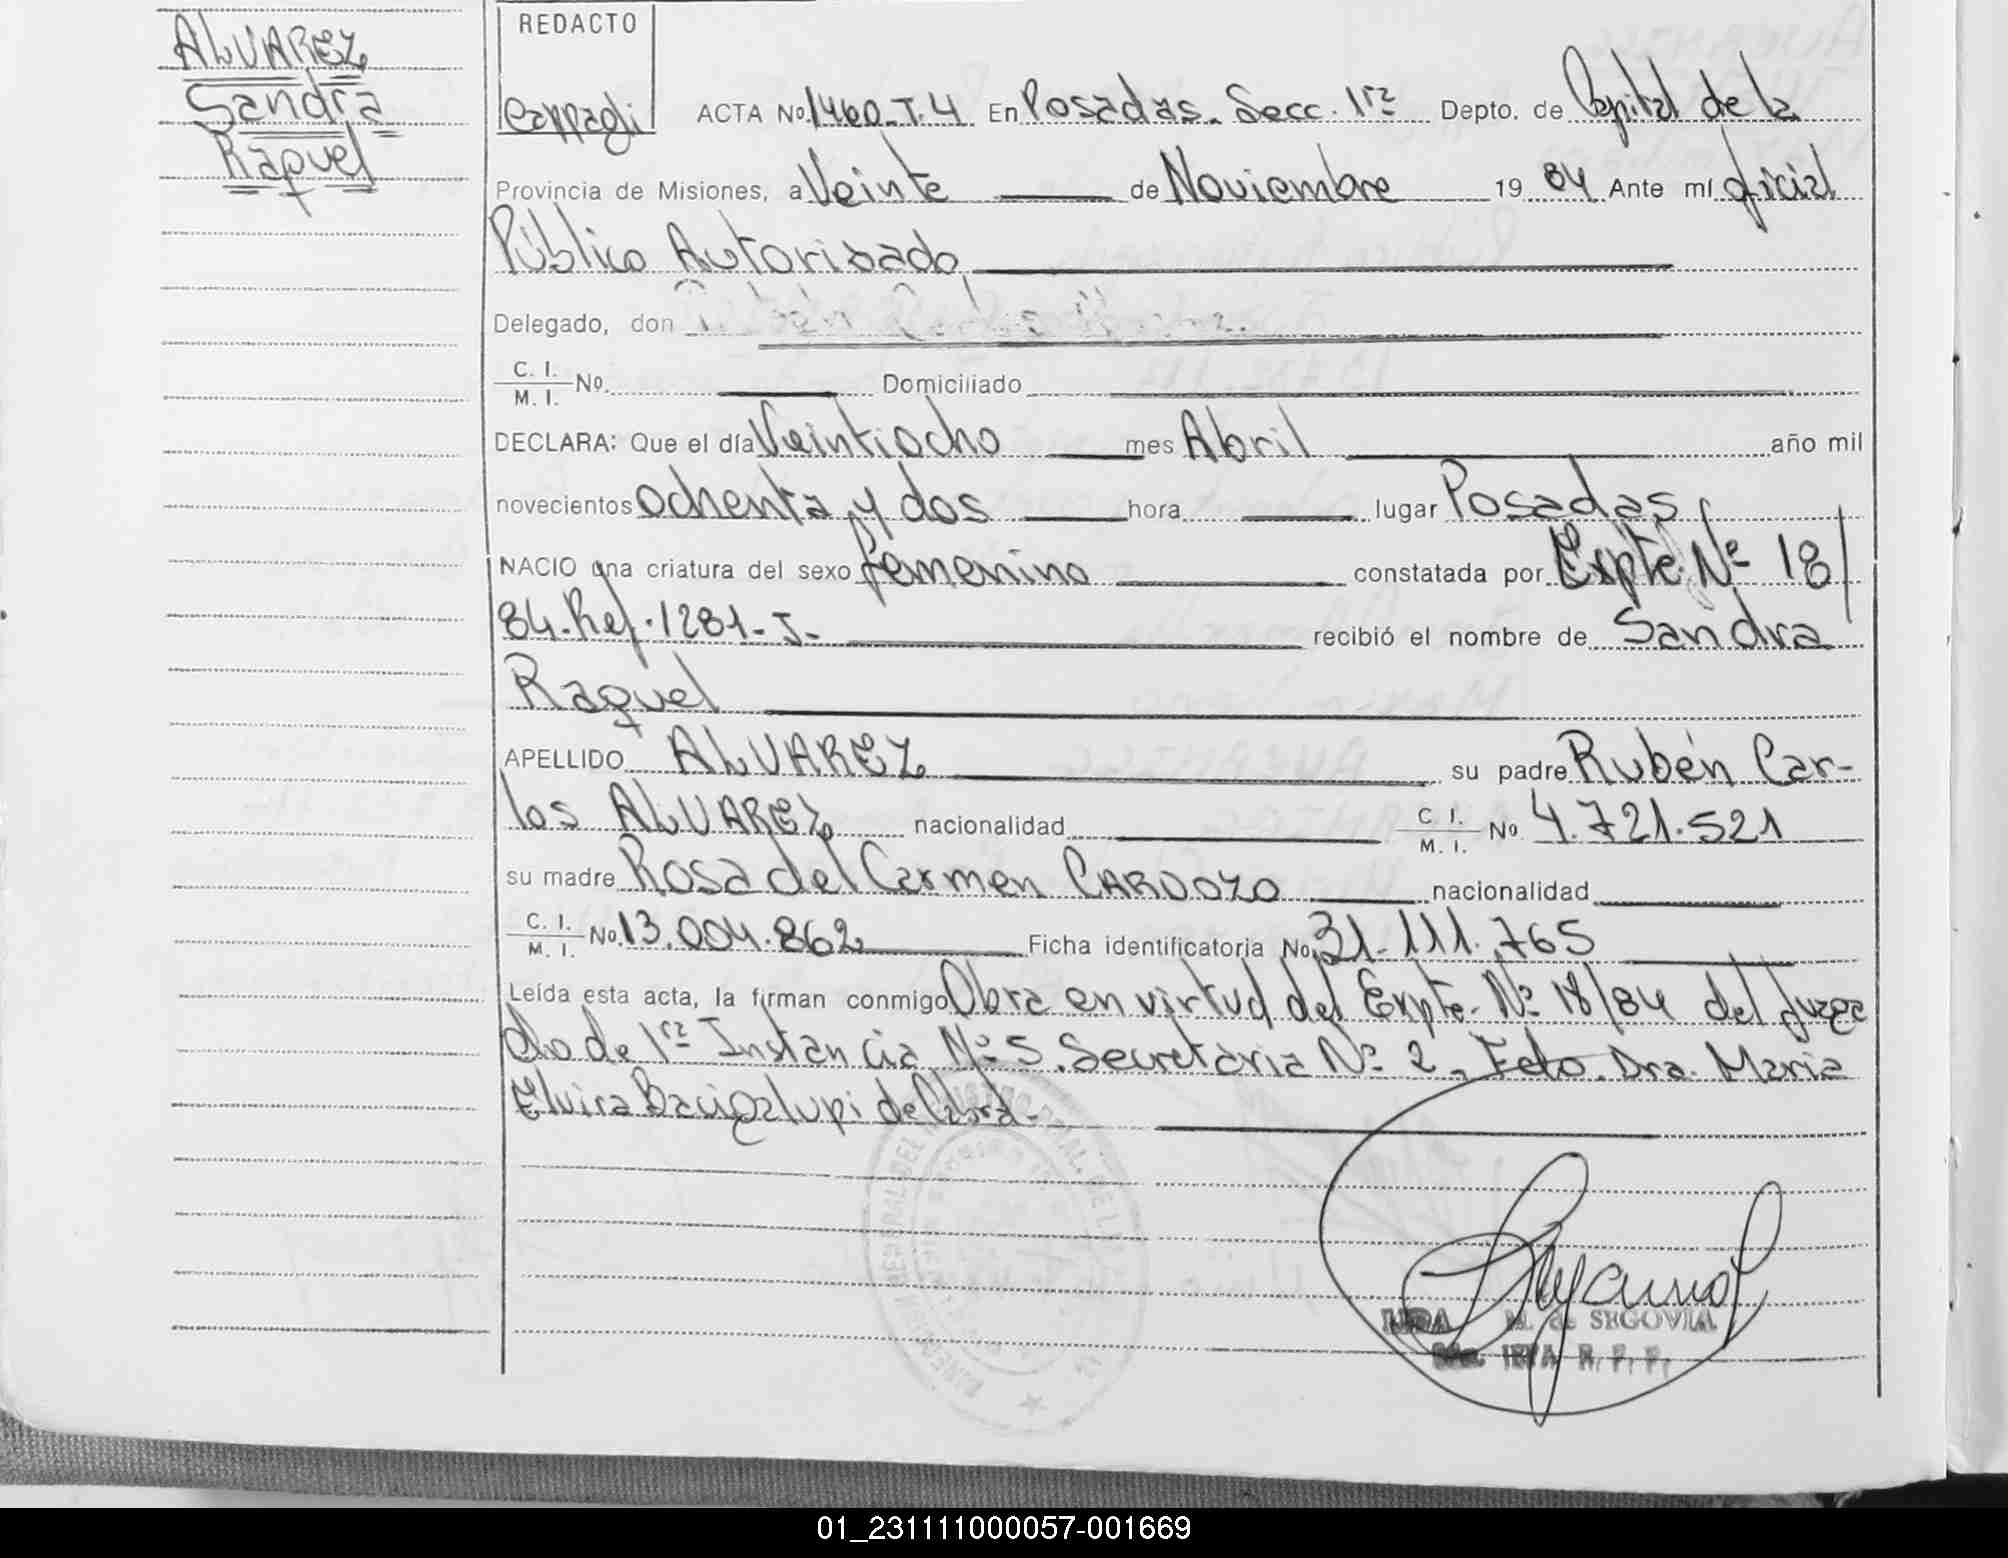 ALVAREZ
Sandra
Raquel
REDACTO
ACTA No. 1460-T.4 En Posadas. Secc. 1ra Depto. de Capital de la
Provincia de Misiones, a Veinte de Noviembre 19 84 Ante mí oficial
Público Autorisado
Delegado, don
C. I.
M. I. No. Domiciliado
DECLARA: Que el día Veintiocho mes Abril año mil
novecientos ochenta y dos hora lugar Posadas
NACIO una criatura del sexo femenino constatada por Expte. Nº 18/
84-Ref. 1281-J- recibió el nombre de Sandra
Raquel
APELLIDO ALVAREZ su padre Rubén Car-
los ALVAREZ nacionalidad C. I. M. I. No. 4.721.521
su madre Rosa del Carmen CARDOZO nacionalidad
C. I. M. I. No. 13.004.862 Ficha identificatoria No. 31-111.765
Leída esta acta, la firman conmigo Obra en virtud del Expte. Nº 18/84 del Juzga
do de 1ra Instancia Nº 5. Secretaria Nº 2. Fdo. Dra. Maria
Elvira Bacigalupi de
M. de SEGOVIA
R. P. P.
01_231111000057-001669